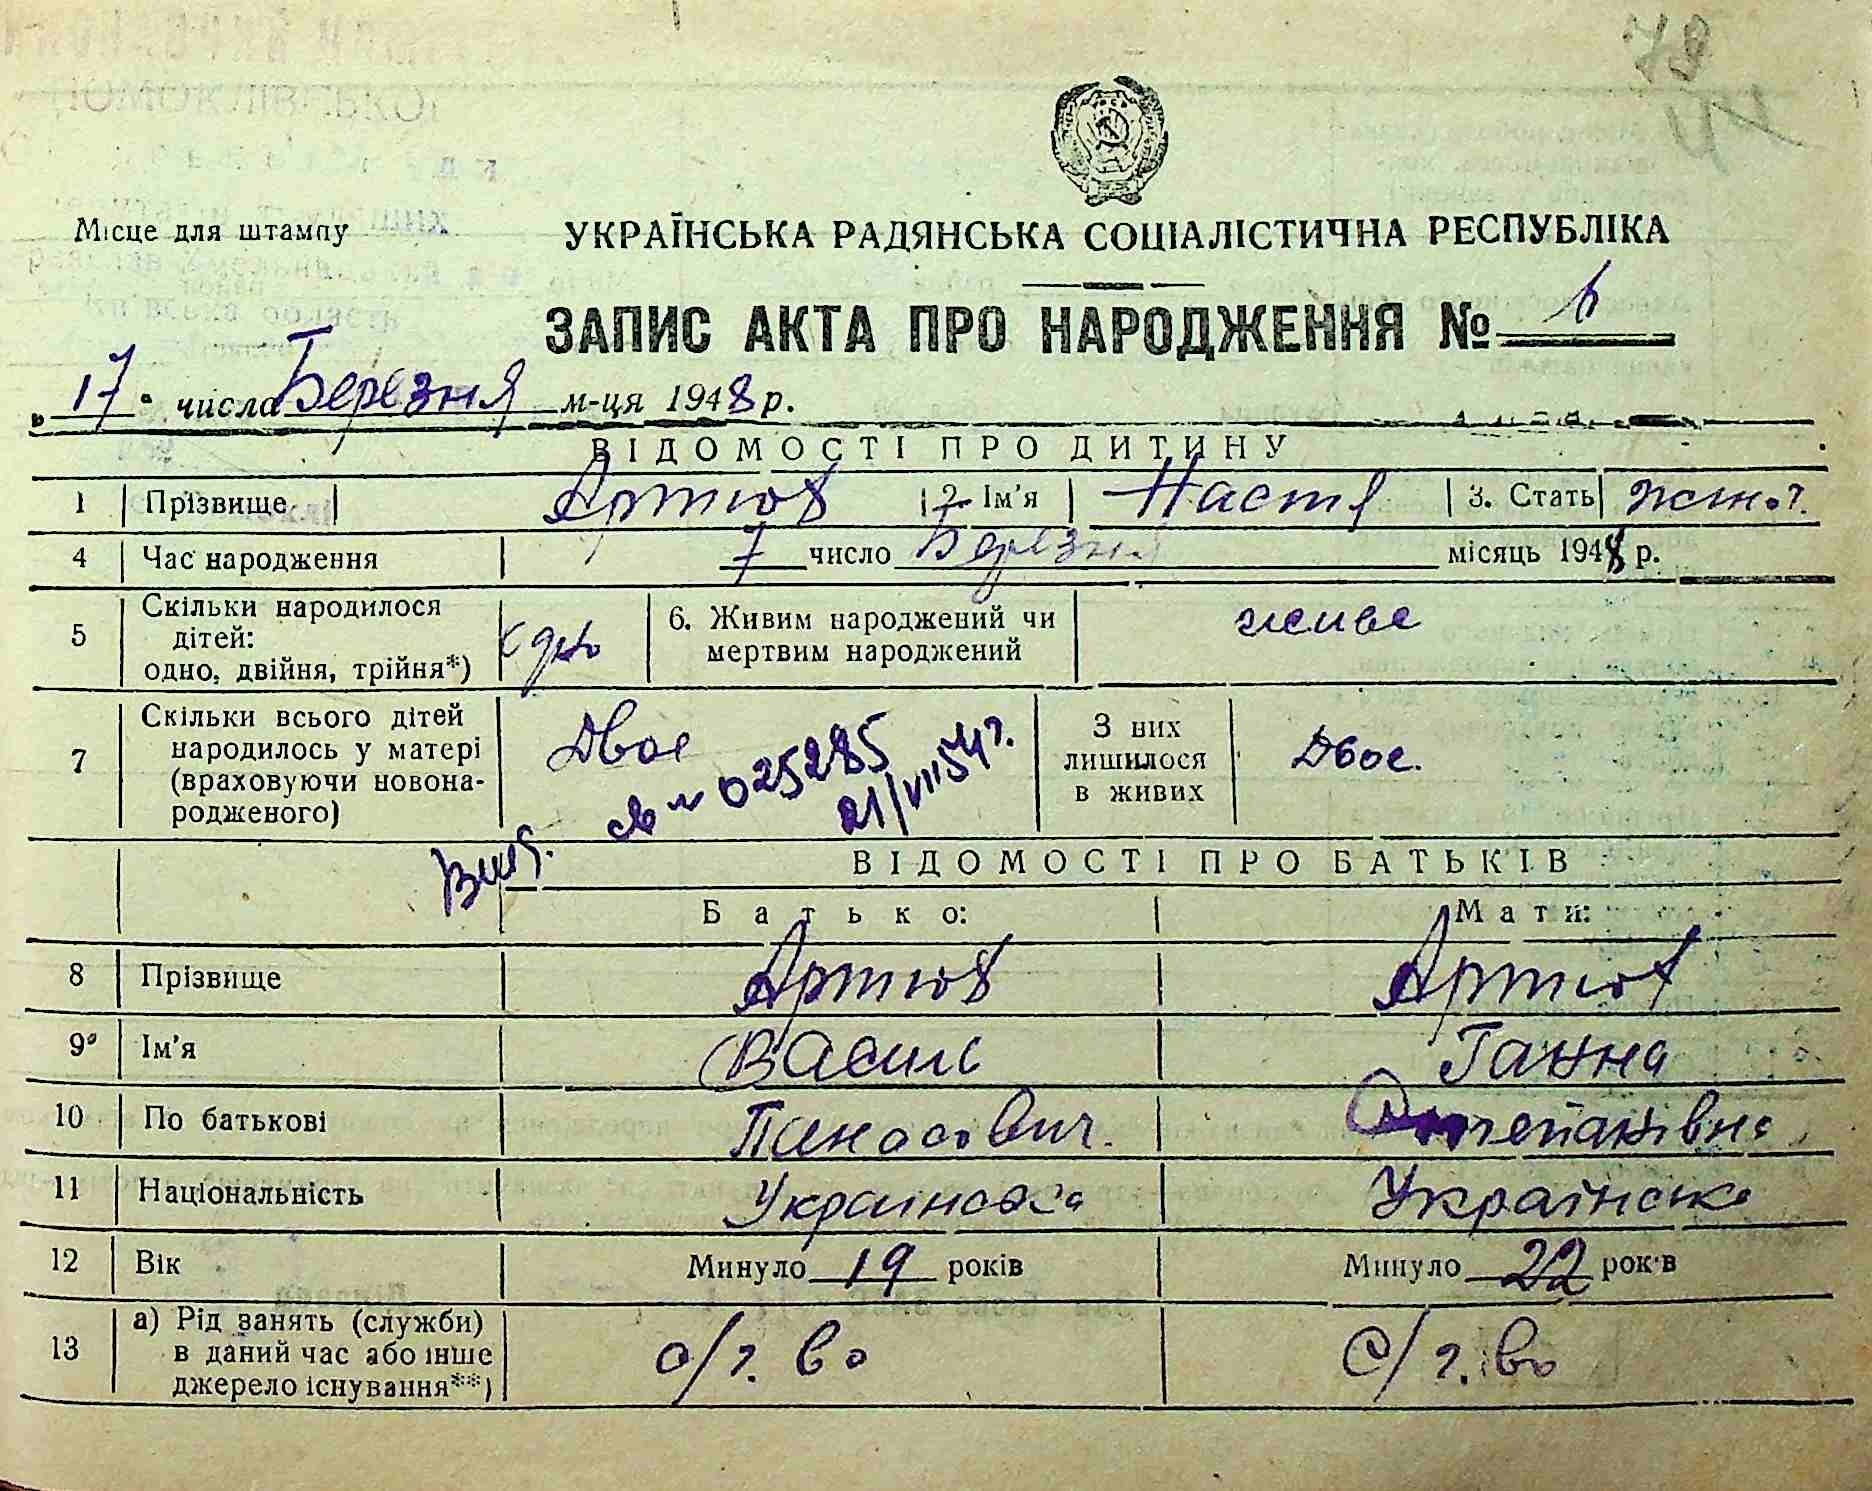 78
Місце для штампу
УКРАЇНСЬКА РАДЯНСЬКА СОЦІАЛІСТИЧНА РЕСПУБЛІКА
ЗАПИС АКТА ПРО НАРОДЖЕННЯ №
„17" числа Березня м-ця 1948 р.
ВІДОМОСТІ ПРО ДИТИНУ
1 Прізвище Артюх 2. Ім'я Настя 3. Стать
4 Час народження 7 число Березня місяць 1948 р.
5 Скільки народилося дітей: одно, двійня, трійня*) одно 6. Живим народжений чи мертвим народжений живе
7 Скільки всього дітей народилось у матері (враховуючи новонародженого) Двое З них лишилося в живих Двое.
св № 025285
21/VII 54 г.
ВІДОМОСТІ ПРО БАТЬКІВ
Батько: Мати:
8 Прізвище Артюх Артюх
9 Ім'я Василь Ганна
10 По батькові Панасович. Степанівна
11 Національність Українська Українська
12 Вік Минуло 19 років Минуло 22 років
13 а) Рід занять (служби) в даний час або інше джерело існування**) с/г. во с/г. во